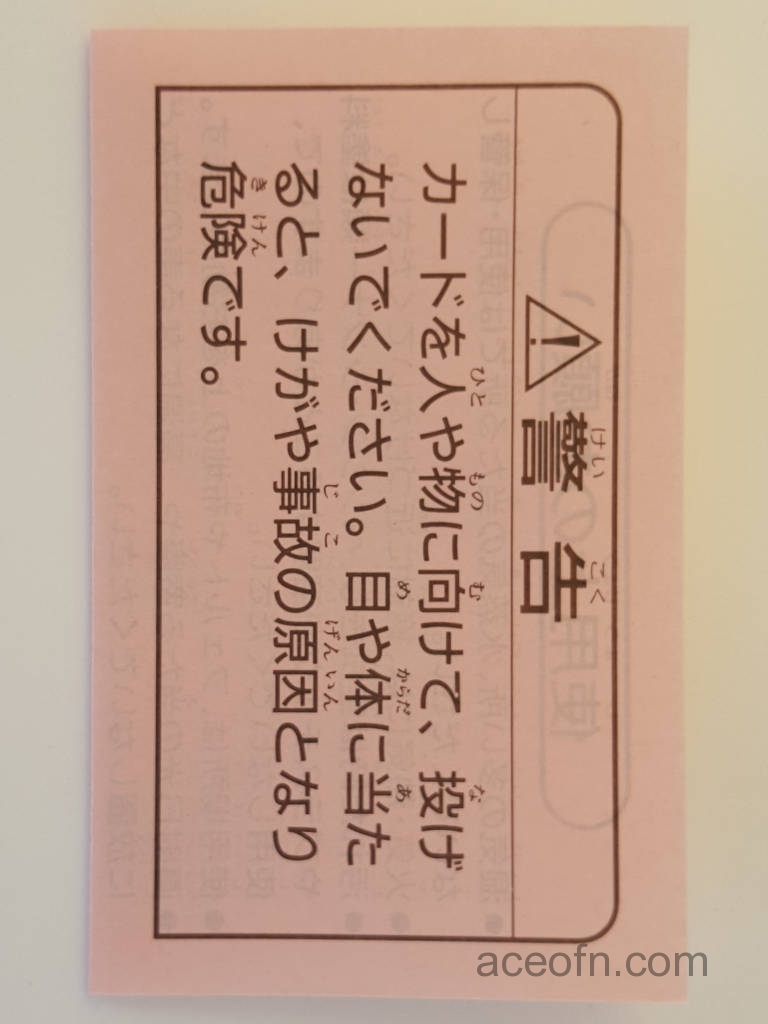 警告
けいこく
カードを人や物に向けて、投げ
ひと もの む な
ないでください。目や体に当た
め からだ あ
ると、けがや事故の原因となり
じこ げんいん
危険です。
きけん
aceofn.com